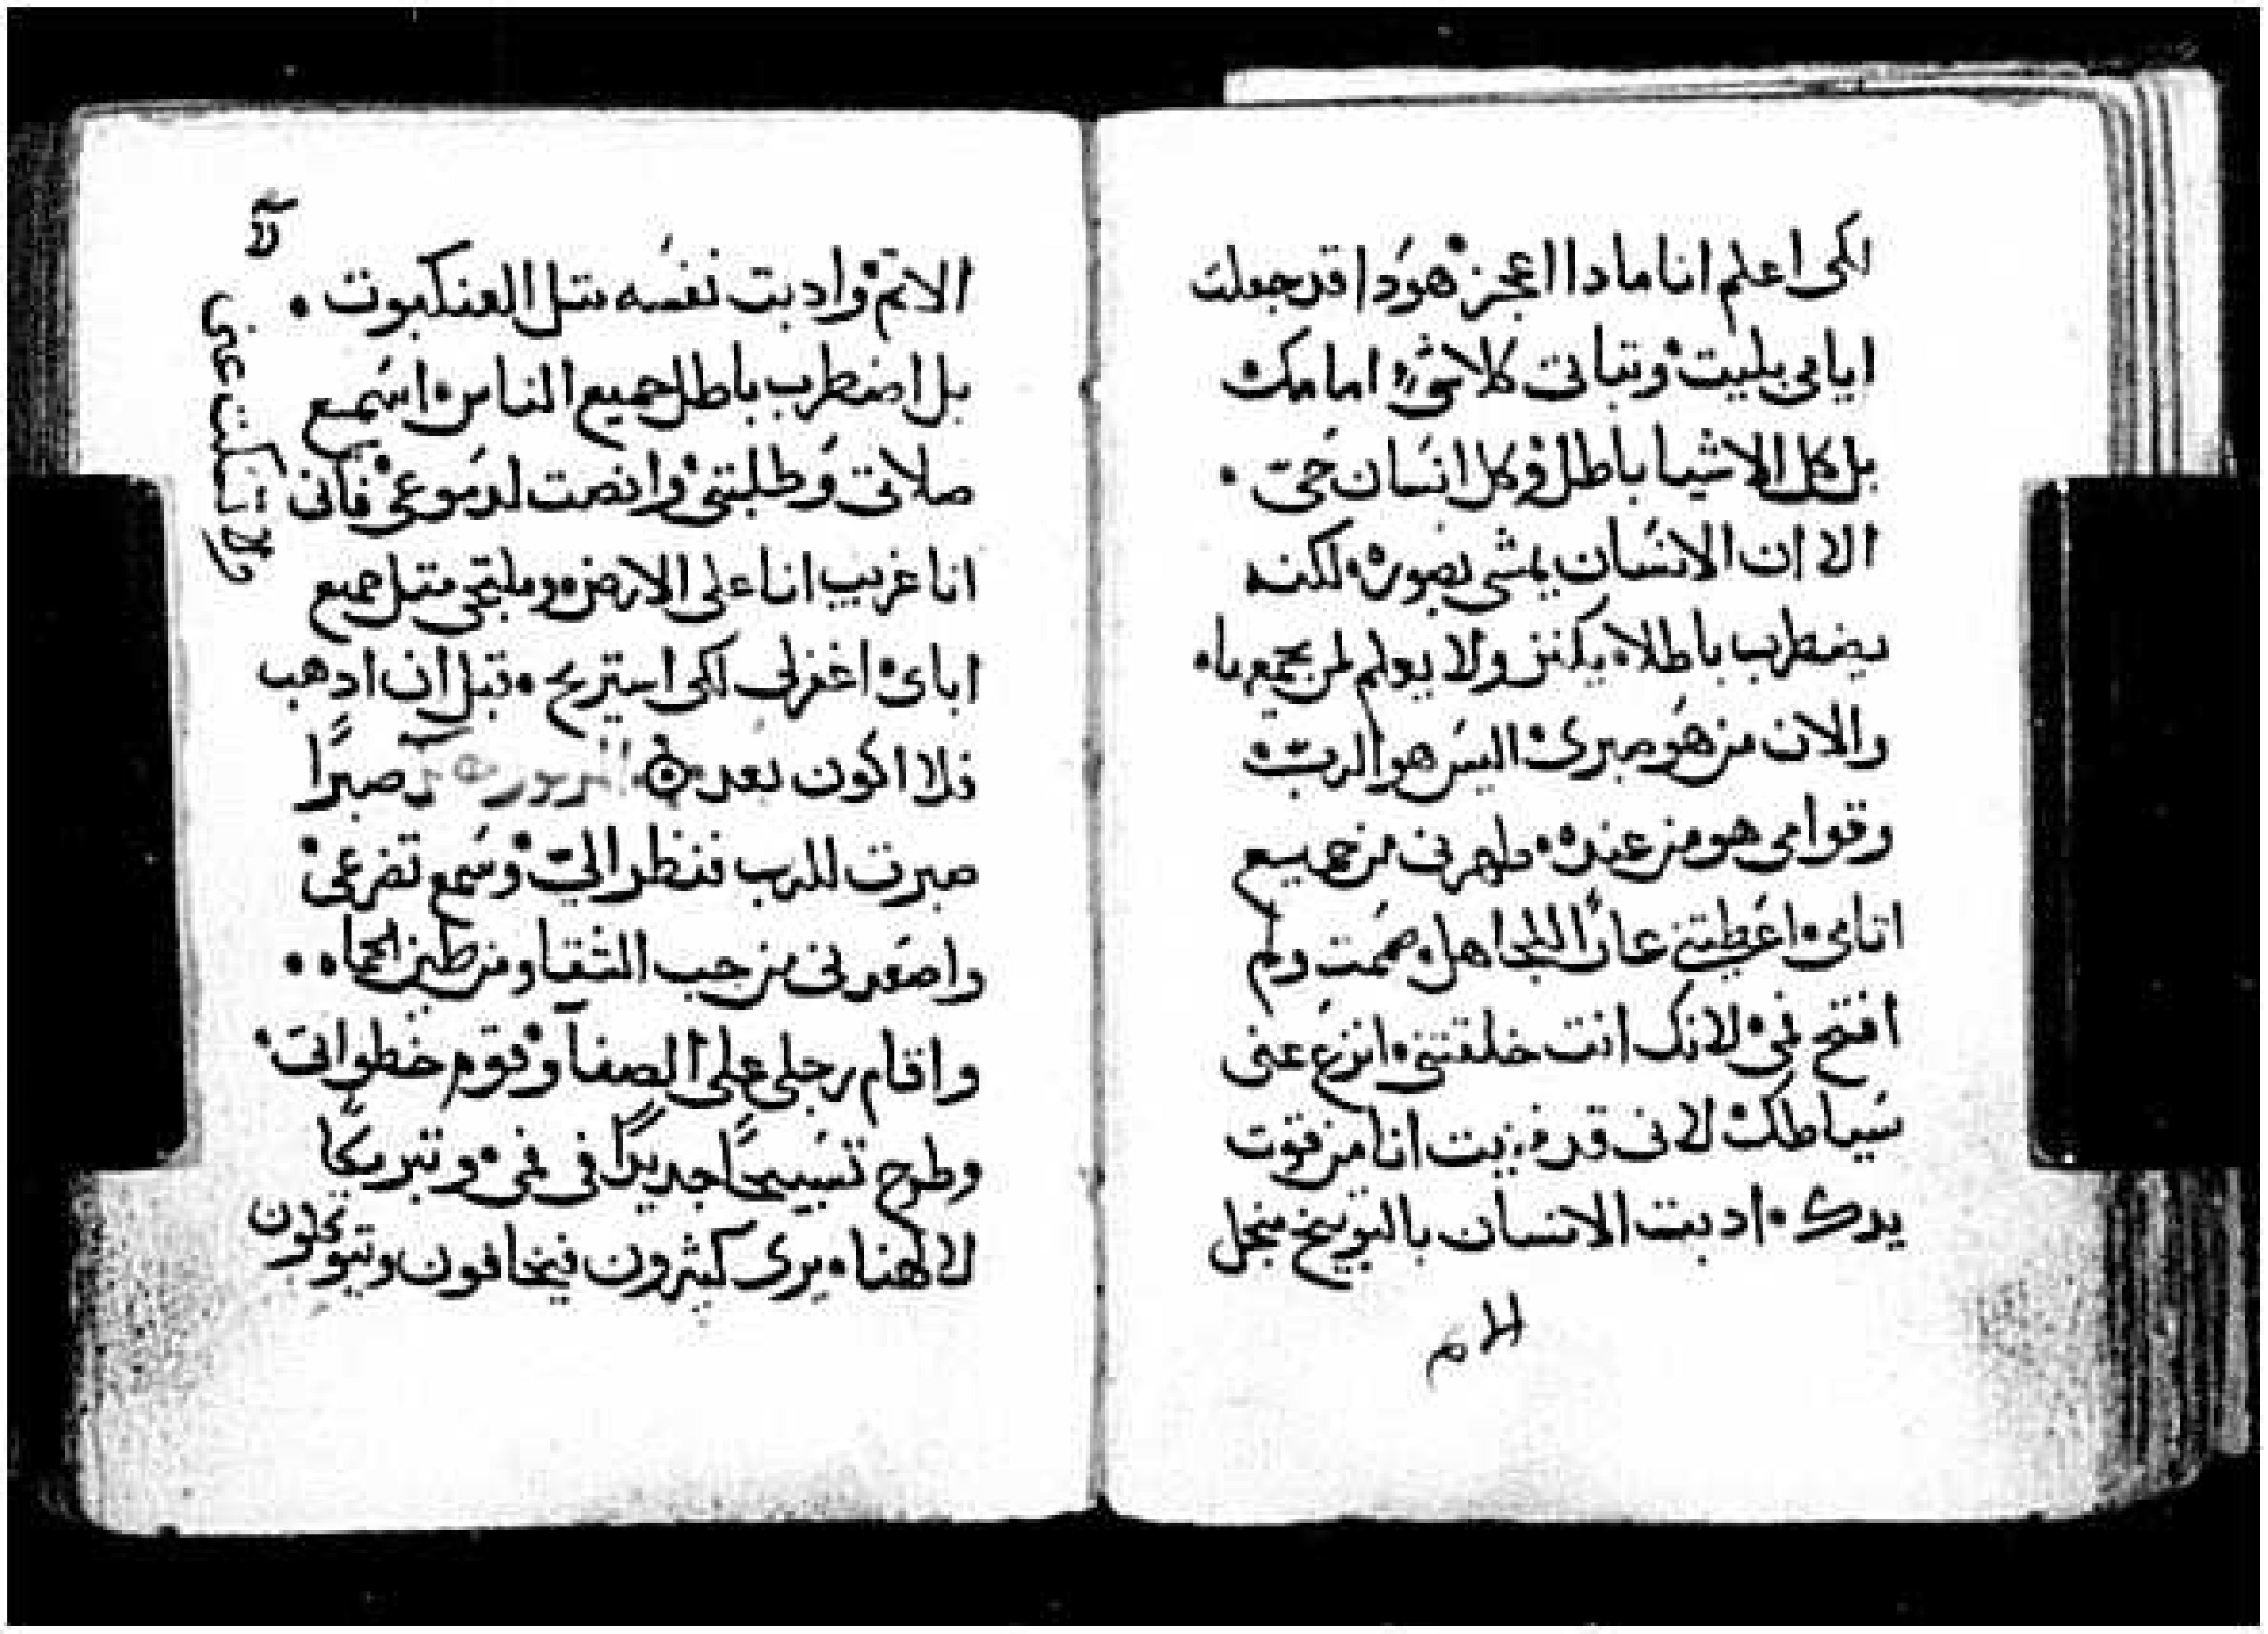 لكى اعلم انا مادا اعجز. هودا قد جعلت
ايامى بليت. وتباتى كلاشى امامك
بل كل الاشيا باطل. وكل انسان حى.
الا ان الانسان يمشى بصوره. لكنه
يضطرب باطلا. يكنز ولا يعلم لمن يجمعها.
والان من هو صبرى. اليس هو الرب.
وقوامى هو من عنده. طهرنى من جميع
اتامى. اعطيتنى عارًا للجاهل. صمت ولم
افتح فمى. لانك انت خلقتنى. انزع عنى
سياطك. لانى قد فنيت انا من قوت
يدك. ادبت الانسان بالتوبيخ من اجل
الاتم. وادبت نفسه متل العنكبوت.
بل اضطرب باطل جميع الناس. اسمع
صلاتى وطلبتى. وانصت لدموعى. فانى
انا غريب انا على الارض. وملتجى متل جميع
اباى. اغفر لى لكى استريح. قبل ان ادهب
فلا اكون بعد. صبرًا
صبرت للرب فنظر الىّ. وسمع تضرعى.
واصعدنى من جب الشقا ومن طين الحماه.
واقام رجلى على الصفا. وقوم خطواتى.
وطرح تسبيحًا جديدًا فى فمى. وتبريكًا
لالهنا. يرى كثيرون فيخافون ويتوكلون
ولا تسكت عنى